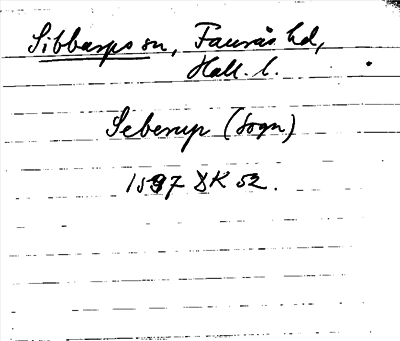 Sibbarps sn, Faurås hd,
Hall. l.
Seberup (Sogn)
1597 DK 52.